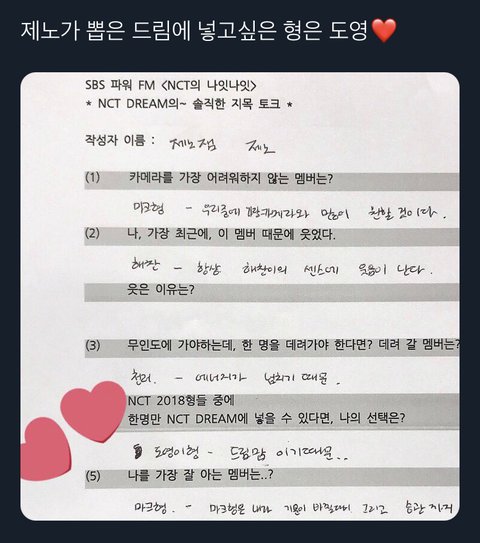 제노가 뽑은 드림에 넣고싶은 형은 도영❤️
SBS 파워 FM <NCT의 나잇나잇>
* NCT DREAM의~ 솔직한 지목 토크 *
작성자 이름 : 제노잼 제노
(1) 카메라를 가장 어려워하지 않는 멤버는?
마크형 - 우리중에 카메라와 많이 친할 것이다.
(2) 나, 가장 최근에, 이 멤버 때문에 웃었다.
해찬 - 항상 해찬이의 센스에 웃음이 난다.
웃은 이유는?
(3) 무인도에 가야하는데, 한 명을 데려가야 한다면? 데려 갈 멤버는?
천러. - 에너지가 넘치기 때문.
NCT 2018형들 중에
한명만 NCT DREAM에 넣을 수 있다면, 나의 선택은?
도영이형 - 드림맘 이기때문..
(5) 나를 가장 잘 아는 멤버는..?
마크형. - 마크형은 내가 기분이 그리고